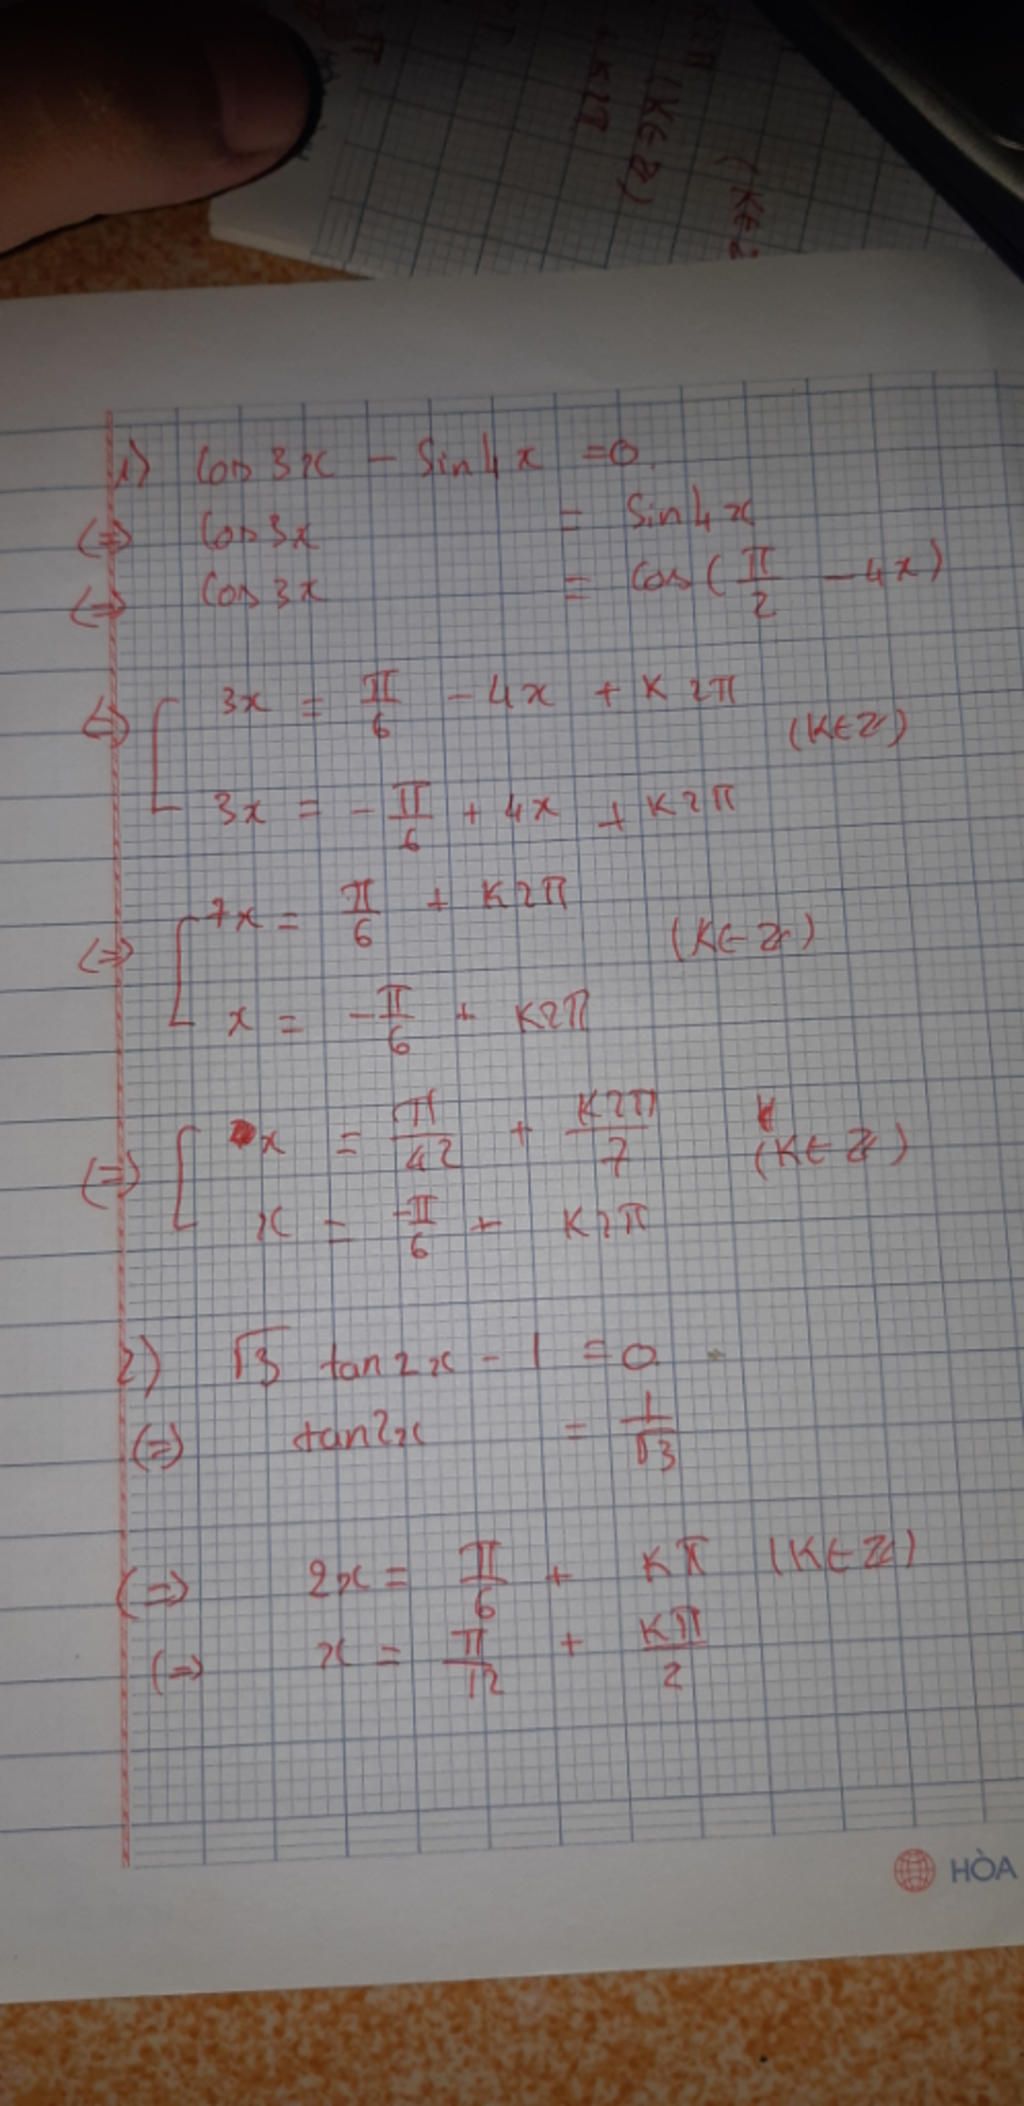 K2π (K∈Z)
(K∈Z
1) Cos 3x - Sin 4x = 0
(=) Cos 3x = Sin 4x
(=) Cos 3x = Cos (π/2 - 4x)
(=) [ 3x = π/6 - 4x + K2π
(K∈Z)
3x = -π/6 + 4x + K2π
(=) [ 7x = π/6 + K2π (K∈Z)
x = -π/6 + K2π
(=) [ x = π/42 + K2π/7 (K∈Z)
x = -π/6 + K2π
2) √3 tan 2x - 1 = 0
(=) tan 2x = 1/√3
(=) 2x = π/6 + Kπ (K∈Z)
(=) x = π/12 + Kπ/2
HÒA